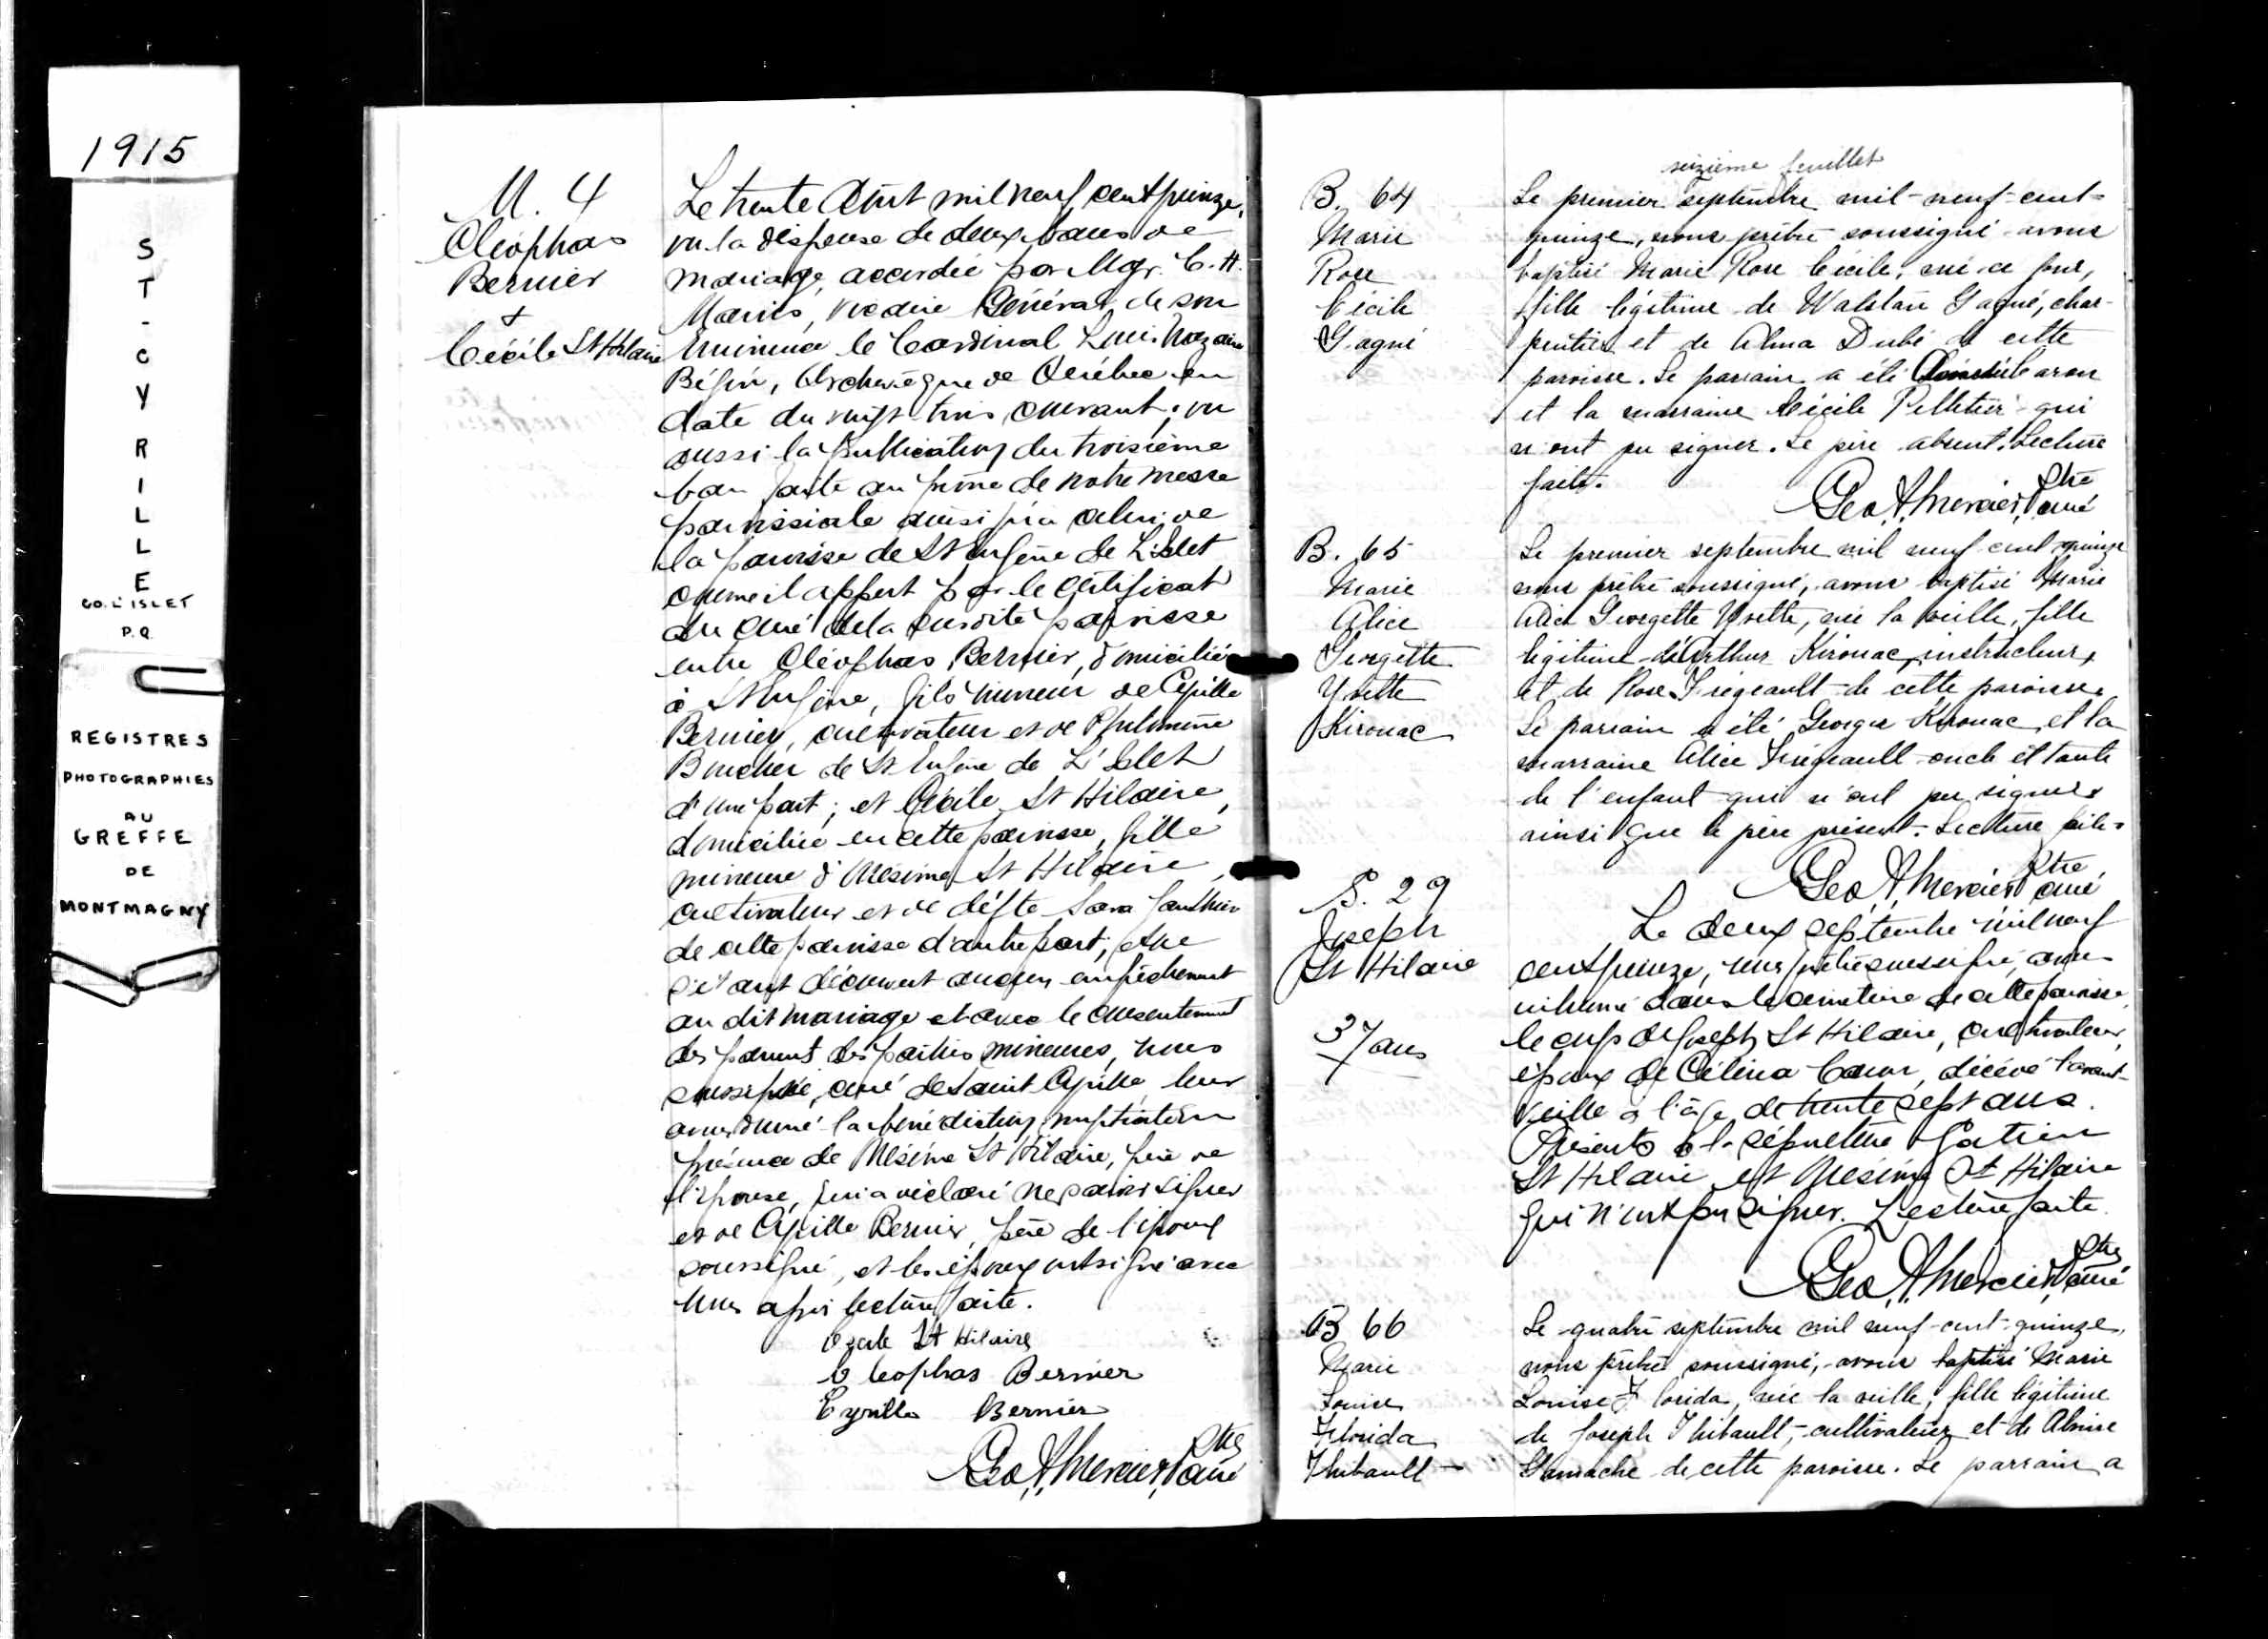 1915
S
T
-
C
Y
R
I
L
L
E
CO. L'ISLET
P.Q.
REGISTRES
PHOTOGRAPHIES
AU
GREFFE
DE
MONTMAGNY
M. 4
Cléophas
Bernier
+
Cécile St Hilaire
Le trente Août mil neuf cent quinze,
vu la dispense de deux bans de
mariage, accordée par Mgr. C. A.
Marois, vicaire Général de son
Eminence le Cardinal Louis Nazaire
Bégin, Archevêque de Québec en
date du vingt trois courant; vu
aussi la publication du troisième
ban faite au prône de notre messe
paroissiale ainsi qu'à celui de
la paroisse de St Eugène de L'Islet
comme il appert par le certificat
du curé de la susdite paroisse
entre Cléophas Bernier, domicilié
à St Eugène, fils mineur de Cyrille
Bernier, cultivateur et de Philomène
Boucher de St Eugène de L'Islet
d'une part; et Cécile St Hilaire,
domiciliée en cette paroisse, fille
mineure d'Onésime St Hilaire,
cultivateur et de défte Sara Gauthier
de cette paroisse d'autre part; et ne
s'étant découvert aucun empêchement
au dit mariage et avec le consentement
des parents des parties mineures, nous
soussigné, curé de Saint Cyrille, leur
avons donné la bénédiction nuptiale en
présence de Onésime St Hilaire, père de
l'épouse, qui a déclaré ne savoir signer
et de Cyrille Bernier, père de l'époux
soussigné, et les époux ont signé avec
nous après lecture faite.
St Hilaire
Cleophas Bernier
Cyrille Bernier
Geo. A. Mercier, Ptre curé
seizième feuillet
B. 64
Marie
Rose
Cécile
Gagné
Le premier septembre mil-neuf-cent-
quinze, nous prêtre soussigné avons
baptisé Marie Rose Cécile, née ce jour,
fille légitime de Walstan Gagné, char-
pentier et de Alma Dubé de cette
paroisse. Le parrain a été Caron
et la marraine Cécile Pelletier qui
n'ont pu signer. Le père absent. Lecture
faite.
Geo. A. Mercier, Ptre curé
B. 65
Marie
Alice
Georgette
Yvette
Kirouac
Le premier septembre mil neuf cent quinze
nous prêtre soussigné, avons baptisé Marie
Alice Georgette Yvette, née la veille, fille
légitime d'Arthur Kirouac, instructeur,
et de Rose Frégeault de cette paroisse.
Le parrain a été Georges Kirouac et la
marraine Alice Frégeault oncle et tante
de l'enfant qui n'ont pu signer
ainsi que le père présent. Lecture faite.
Geo. A. Mercier Ptre curé
S. 29
Joseph
St Hilaire
37 ans
Le deux septembre mil neuf
cent quinze, nous prêtre soussigné, avons
inhumé dans le cimetière de cette paroisse,
le corps de Joseph St Hilaire, cultivateur,
époux de Célina Caron, décédé l'avant-
veille à l'âge de trente sept ans.
Présents à la sépulture Gatien
St Hilaire et Onésime St Hilaire
qui n'ont pu signer. Lecture faite.
Geo. A. Mercier, Ptre curé
B 66
Marie
Louise
Florida
Thibault
Le quatre septembre mil neuf-cent-quinze,
nous prêtre soussigné, avons baptisé Marie
Louise Florida, née la veille, fille légitime
de Joseph Thibault, cultivateur et de Almire
Gamache de cette paroisse. Le parrain a